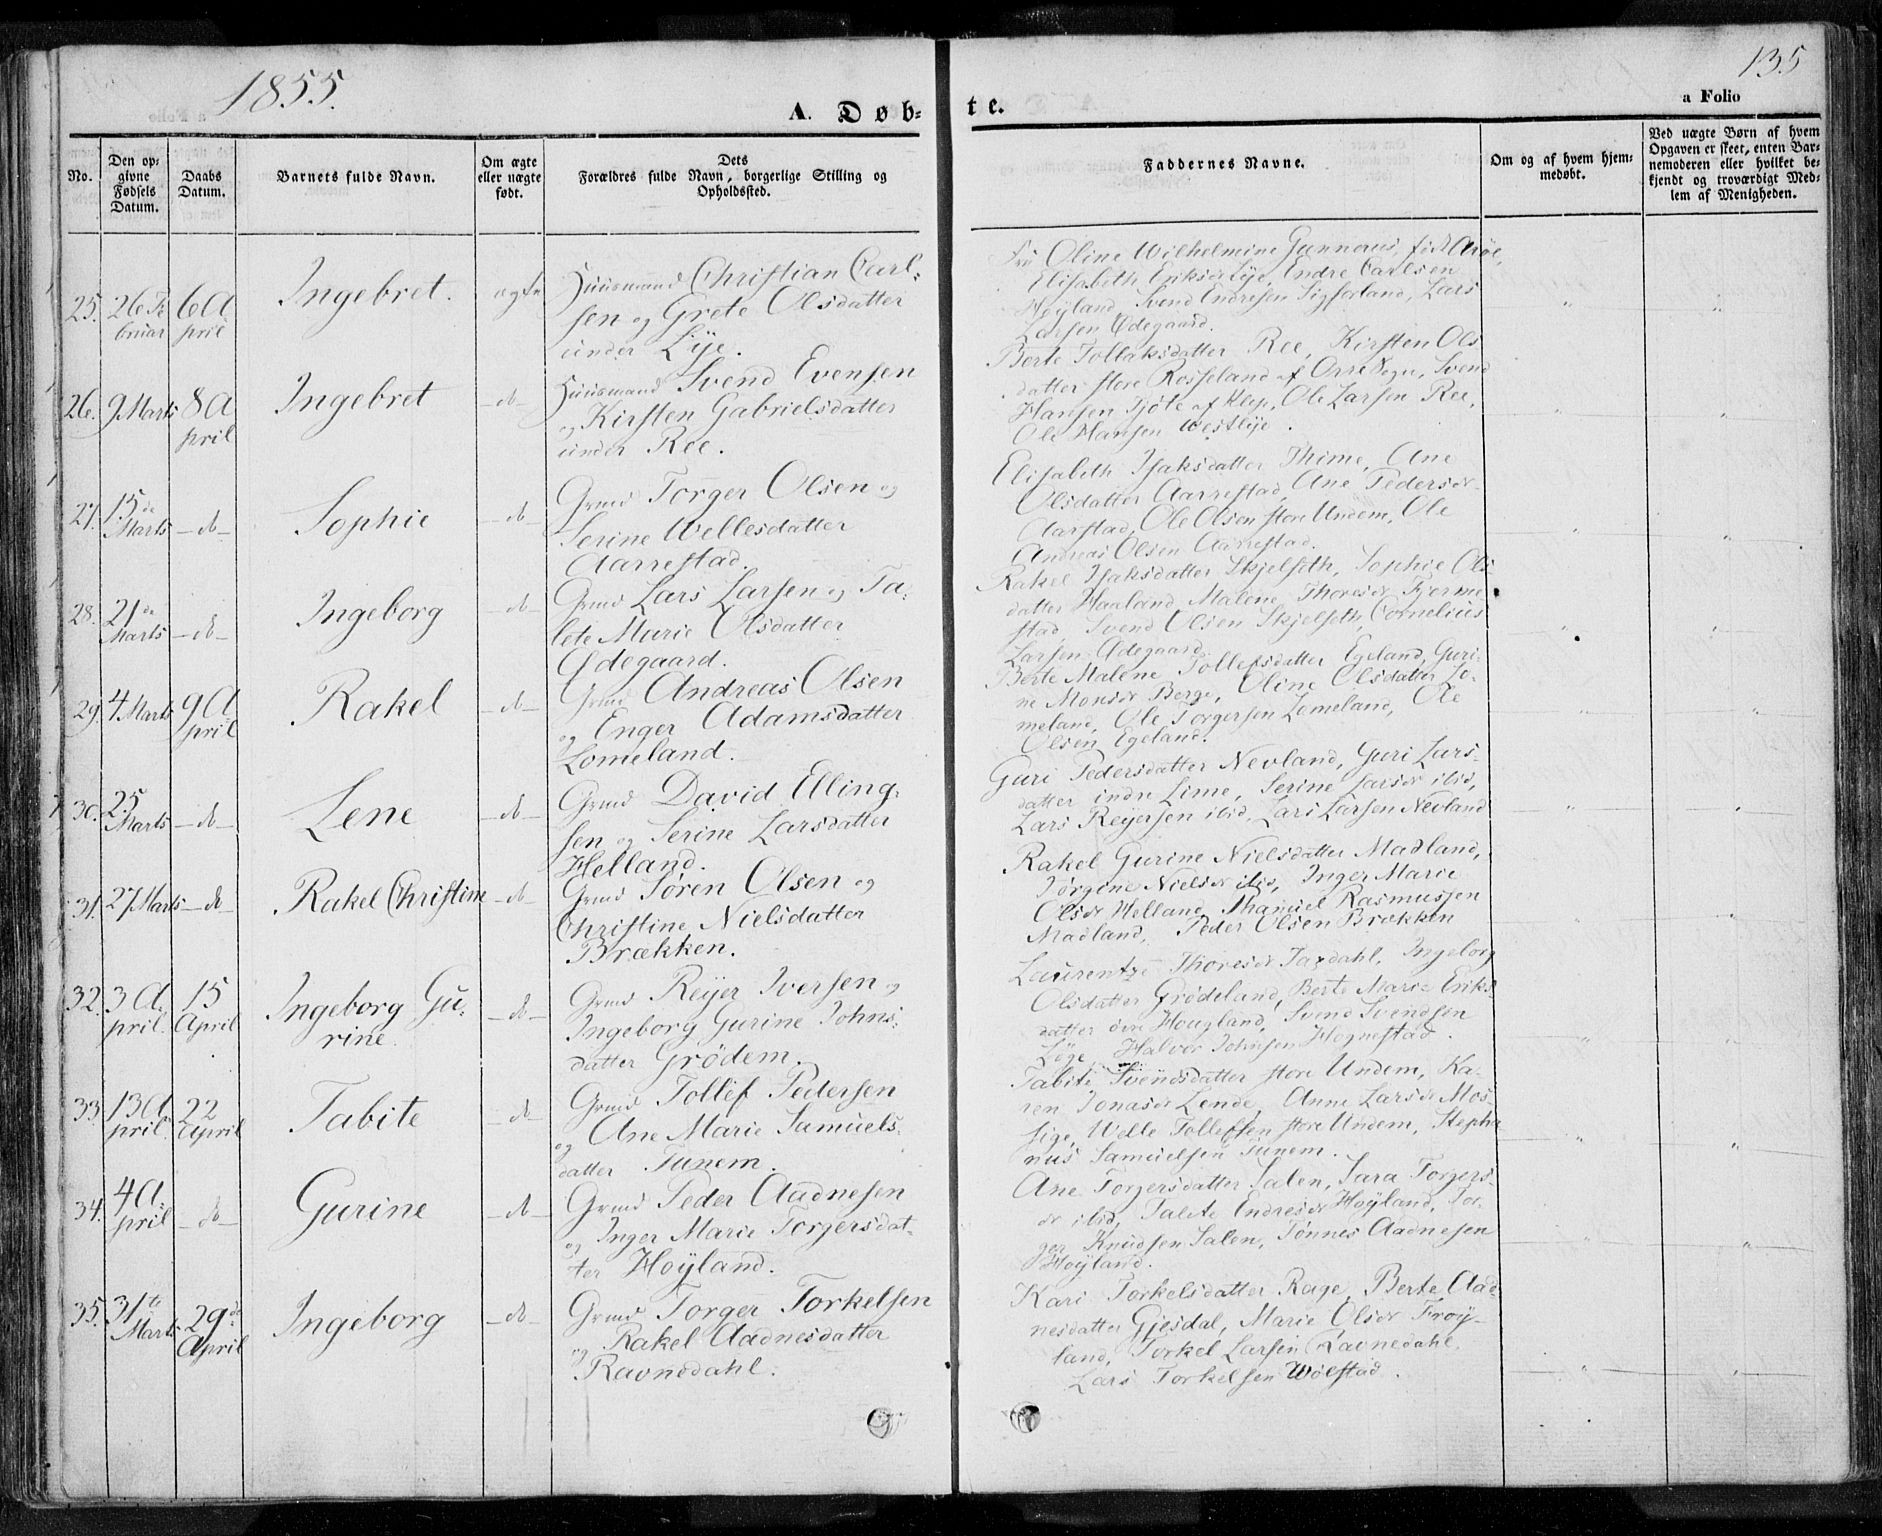 1855.
135
A. Døb-
te.
a Folio
No.
Den op-
givne
Fødsels
Datum.
Daabs
Datum.
Barnets fulde Navn.
Om ægte
eller uægte
født.
Dets
Forældres fulde Navn, borgerlige Stilling og
Opholdssted.
Faddernes Navne.
Om og af hvem hjem-
medøbt.
Ved uægte Børn af hvem
Opgaven er skeet, enten Bar-
nemoderen eller hvilket be-
kjendt og troværdigt Med-
lem af Menigheden.
25.
26 Fe
bruar
6 A
pril
Ingebret.
ægte
Huusmand Christian Carl-
sen og Grete Olsdatter
under Lye.
Fru Oline Wilhelmine Gunnerus, født Arøe,
Elisabeth Eriksdr Lye, Endre Carlsen
Høyland, Svend Endresen Sigferland, Lars
Larsen Ødegaard.
26.
9 Marts
8 A
pril
Ingebret
-do-
Huusmand Svend Evensen
og Kirsten Gabrielsdatter
under Ree.
Berte Tollaksdatter Ree, Kirsten Ols
datter store Rosseland af Orre Sogn, Svend
Hansen Tjøte af Klep, Ole Larsen Ree,
Ole Hansen Westlye.
27.
15de
Marts
-do-
Sophie
-do-
Grmd Torger Olsen og
Serine Wellesdatter
Aarrestad.
Elisabeth Isaksdatter Thime, Ane
Olsdatter Aarrestad, Ane Pedersdr
Aarstad, Ole Olsen store Undem, Ole
Andreas Olsen Aarrestad.
28.
21de
Marts
-do-
Ingeborg
-do-
Grmd Lars Larsen og Ta-
lete Marie Olsdatter
Ødegaard.
Rakel Isaksdatter Skjelseth, Sophie Ols
datter Haaland, Malene Thoresdr Fjerme
stad, Svend Olsen Skjelseth, Cornelius
Larsen Ødegaard.
29.
4 Marts
9 A
pril
Rakel
-do-
Grmd Andreas Olsen
og Enger Adamsdatter
Lomeland.
Berte Malene Tollefsdatter Egeland, Guri-
ne Monsdr Berge, Oline Olsdatter Lo-
meland, Ole Torgersen Lomeland, Ole
Olsen Egeland.
30.
25
Marts
-do-
Lene
-do-
Grmd David Elling-
sen og Serine Larsdatter
Helland.
Guri Pedersdatter Nevland, Guri Lars-
datter indre Lime, Serine Larsdr ibid,
Lars Reyersen ibid, Lars Larsen Nevland
31.
27 Marts
-do-
Rakel Christine
-do-
Grmd Søren Olsen og
Christine Nielsdatter
Brækken.
Rakel Gurine Nielsdatter Madland,
Jørgine Nielsdr ibid, Inger Marie
Olsdr Helland, Thaniel Rasmussen
Madland, Peder Olsen Brækken
32.
3 A
pril.
15
April
Ingeborg Gu-
rine.
-do-
Grmd Reyer Iversen og
Ingeborg Gurine Johns-
datter Grødem.
Laurentze Thoresdr Taxdahl, Ingeborg
Olsdatter Grødeland, Berte Marie Eriks
datter øvre Hougland, Svend Svendsen
Løge, Halvor Johnsen Hognestad.
33.
13 A
pril.
22
April
Tabite
-do-
Grmd Tollef Pedersen
og Ane Marie Samuels-
datter Tunem.
Tabite Svendsdatter store Undem, Ka-
ren Jonasdr Lende, Anne Larsdr Mos-
sige, Welle Tollefsen store Undem, Stepha
nus Samuelsen Tunem.
34.
4 A
pril
-do-
Gurine
-do-
Grmd Peder Aadnesen
og Inger Marie Torgersdat-
ter Høyland.
Ane Torgersdatter Salen, Sara Torgers
dr ibid, Talete Endresdr Høyland, Tor-
ger Knudsen Salen, Tønnes Aadnesen
Høyland.
35.
31te
Marts
29de
April
Ingeborg
-do-
Grmd Torger Torkelsen
og Rakel Aadnesdatter
Ravnedahl.
Kari Torkelsdatter Rage, Berte Aad-
nesdatter Gjesdal, Marie Olsdr Frøy-
land, Torkel Larsen Ravnedahl,
Lars Torkelsen Wølstad.